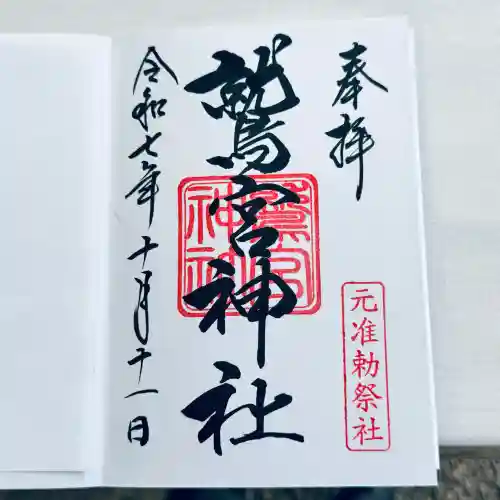 奉拝
鷲宮神社
鷲宮
神社
元准勅祭社
令和七年十月十一日